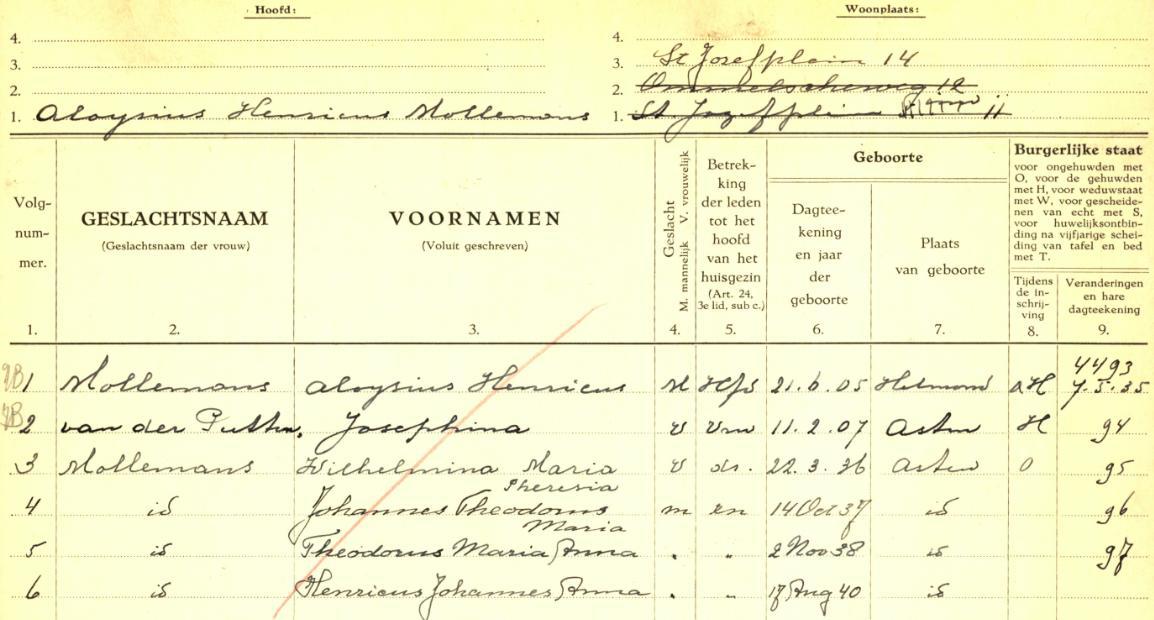 Hoofd: Woonplaats:
4. 4.
3. 3. St Jozefplein 14
2. 2. Ommelscheweg 12
1. Aloysius Henricus Mollemans 1. St. Jozefplein 11
Volg-
num-
mer.
1.
GESLACHTSNAAM
(Geslachtsnaam der vrouw)
2.
VOORNAMEN
(Voluit geschreven)
3.
Geslacht
M. mannelijk V. vrouwelijk
4.
Betrek-
king
der leden
tot het
hoofd
van het
huisgezin
(Art. 24,
3e lid, sub c.)
5.
Geboorte
Dagtee-
kening
en jaar
der
geboorte
6.
Plaats
van geboorte
7.
Burgerlijke staat
voor ongehuwden met
O, voor de gehuwden
met H, voor weduwstaat
met W, voor gescheide-
nen van echt met S,
voor huwelijksontbin-
ding na vijfjarige schei-
ding van tafel en bed
met T.
Tijdens
de in-
schrij-
ving
8.
Veranderingen
en hare
dagteekening
9.
4493
1 Mollemans Aloysius Henricus M Hfd 21.6.05 Helmond H 7.5.35
2 van der Putten, Josephina V Vrw 11.2.07 Asten H 94
3 Mollemans Wilhelmina Maria V dr. 22.3.36 Asten O 95
Theresia
4 id Johannes Theodorus m zn 14 Oct 37 id 96
Maria
5 id Theodorus Maria Anna . " 2 Nov 38 id 97
6 id Henricus Johannes Anna . " 17 Aug 40 id